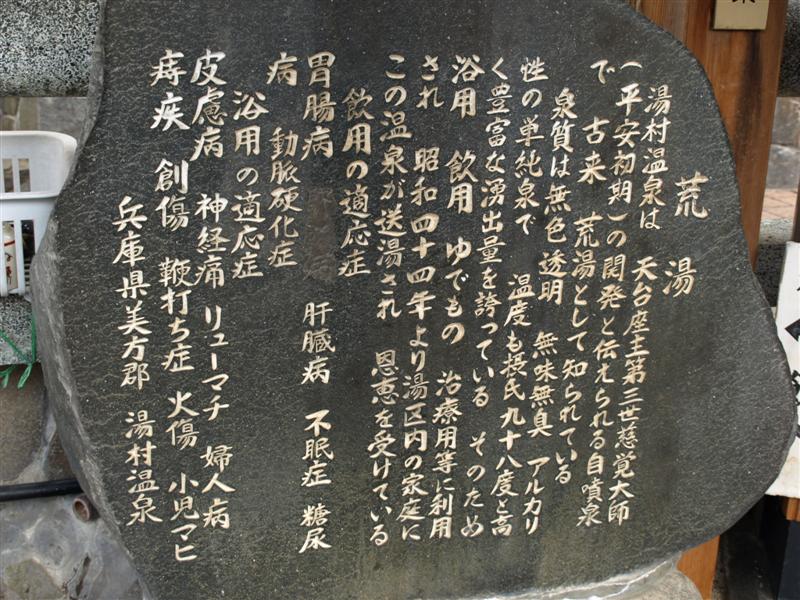 荒湯
湯村温泉は 天台座主第三世慈覚大師
(平安初期)の開発と伝えられる自噴泉
で 古来 荒湯として知られている
泉質は無色透明 無味無臭 アルカリ
性の単純泉で 温度も摂氏九十八度と高
く豊富な湧出量を誇っている そのため
浴用 飲用 ゆでもの 治療用等に利用
され 昭和四十四年より湯区内の家庭に
この温泉が送湯され 恩恵を受けている
飲用の適応症
胃腸病 肝臓病 不眠症 糖尿
病 動脈硬化症
浴用の適応症
皮膚病 神経痛 リューマチ 婦人病
痔疾 創傷 鞭打ち症 火傷 小児マヒ
兵庫県美方郡 湯村温泉